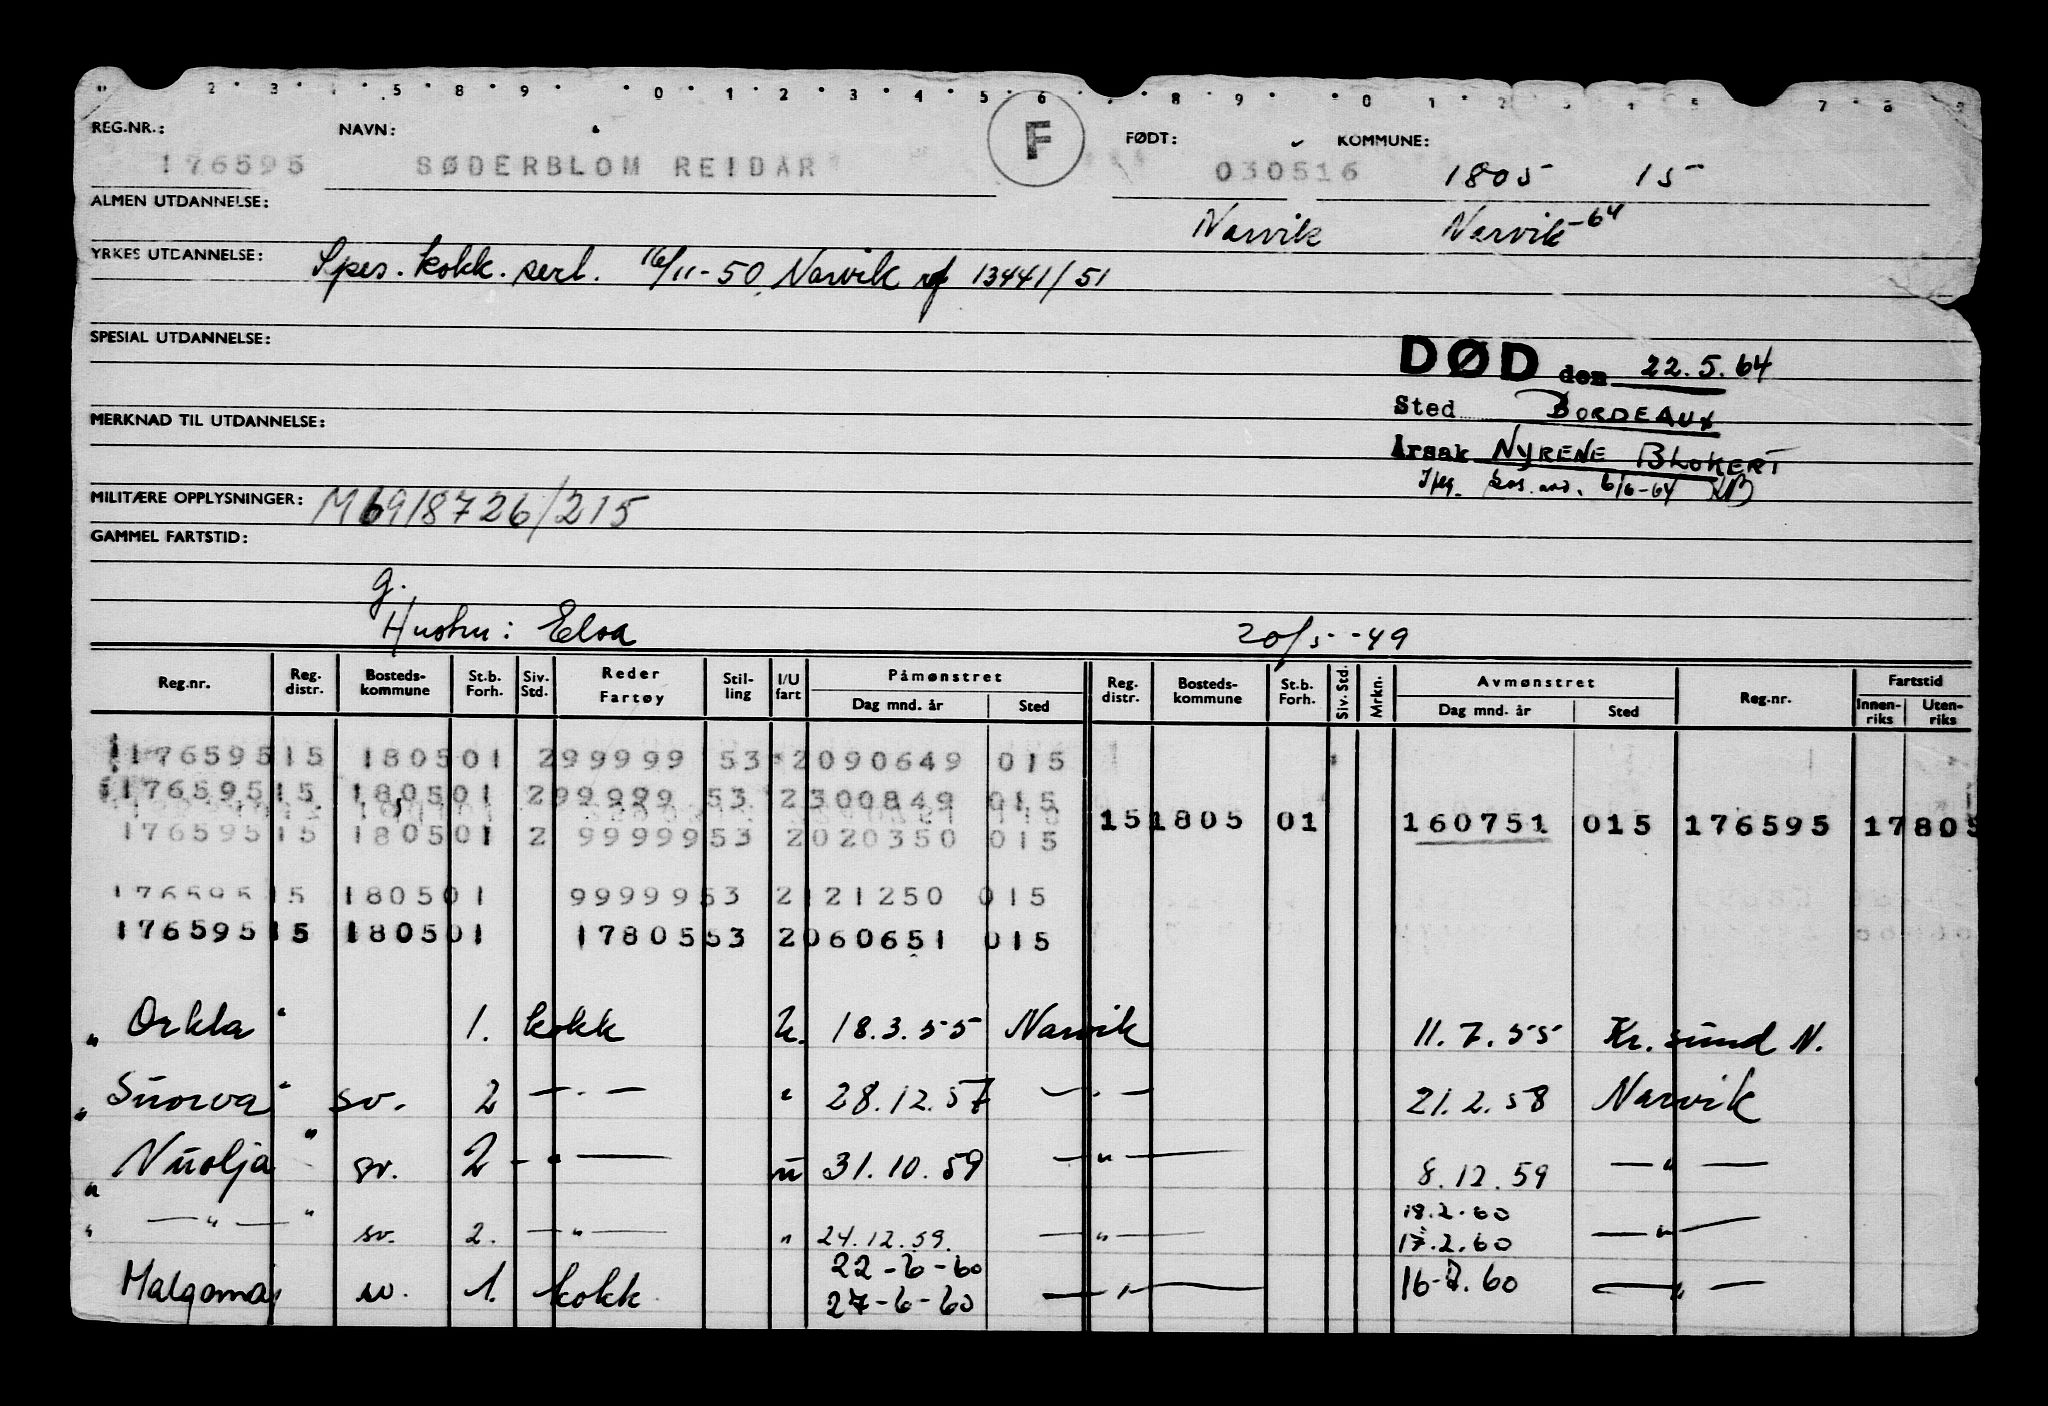 2 3 5 8 9 0 1 2 3 4 5 6 8 9 0 1 2 3 4 5 7 8 9
REG.NR.: NAVN: F FØDT: KOMMUNE:
176595 SØDERBLOM REIDAR 030516 1805 15
ALMEN UTDANNELSE:
Narvik Narvik-64
YRKES UTDANNELSE: Spes. kokk. serl. 16/11-50 Narvik rf 13441/51
SPESIAL UTDANNELSE:
DØD den 22.5.64
Sted BORDEAUX
MERKNAD TIL UTDANNELSE:
Årsak NYRENE BLOKERT
6/6-64
MILITÆRE OPPLYSNINGER: M6918726/215
GAMMEL FARTSTID:
g.
Hustru: Elsa 20/5-49
Reg.nr. Reg. distr. Bosteds-kommune St.b. Forh. Siv. Std. Reder Fartøy Stil-ling I/U fart Påmønstret Dag mnd. år Sted Reg. distr. Bosteds-kommune St.b. Forh. Siv. Std. Mrkn. Avmønstret Dag mnd. år Sted Reg.nr. Fartstid Innen-riks Uten-riks
176595 15 1805 01 2 99999 53 2 090649 015
176595 15 1805 01 2 99999 53 2 300849 015
15 1805 01 160751 015 176595 17805
176595 15 1805 01 2 99999 53 2 020350 015
176595 15 1805 01 99999 53 2 121250 015
176595 15 1805 01 17805 53 2 060651 015
" Orkla " 1. kokk u. 18.3.55 Narvik 11.7.55 Kr.sund N.
" Suorva " sv. 2 — . — " 28.12.57 — . — 21.2.58 Narvik
" Nuolja " sv. 2 - " — u 31.10.59 — " — 8.12.59 — " —
" — " — " sv. 2. — " — " 24.12.59. — " — 18.2.60 17.2.60 — " —
Malgomaj sv. 1. kokk 22-6-60 27-6-60 — " — 16-7.60 — " —